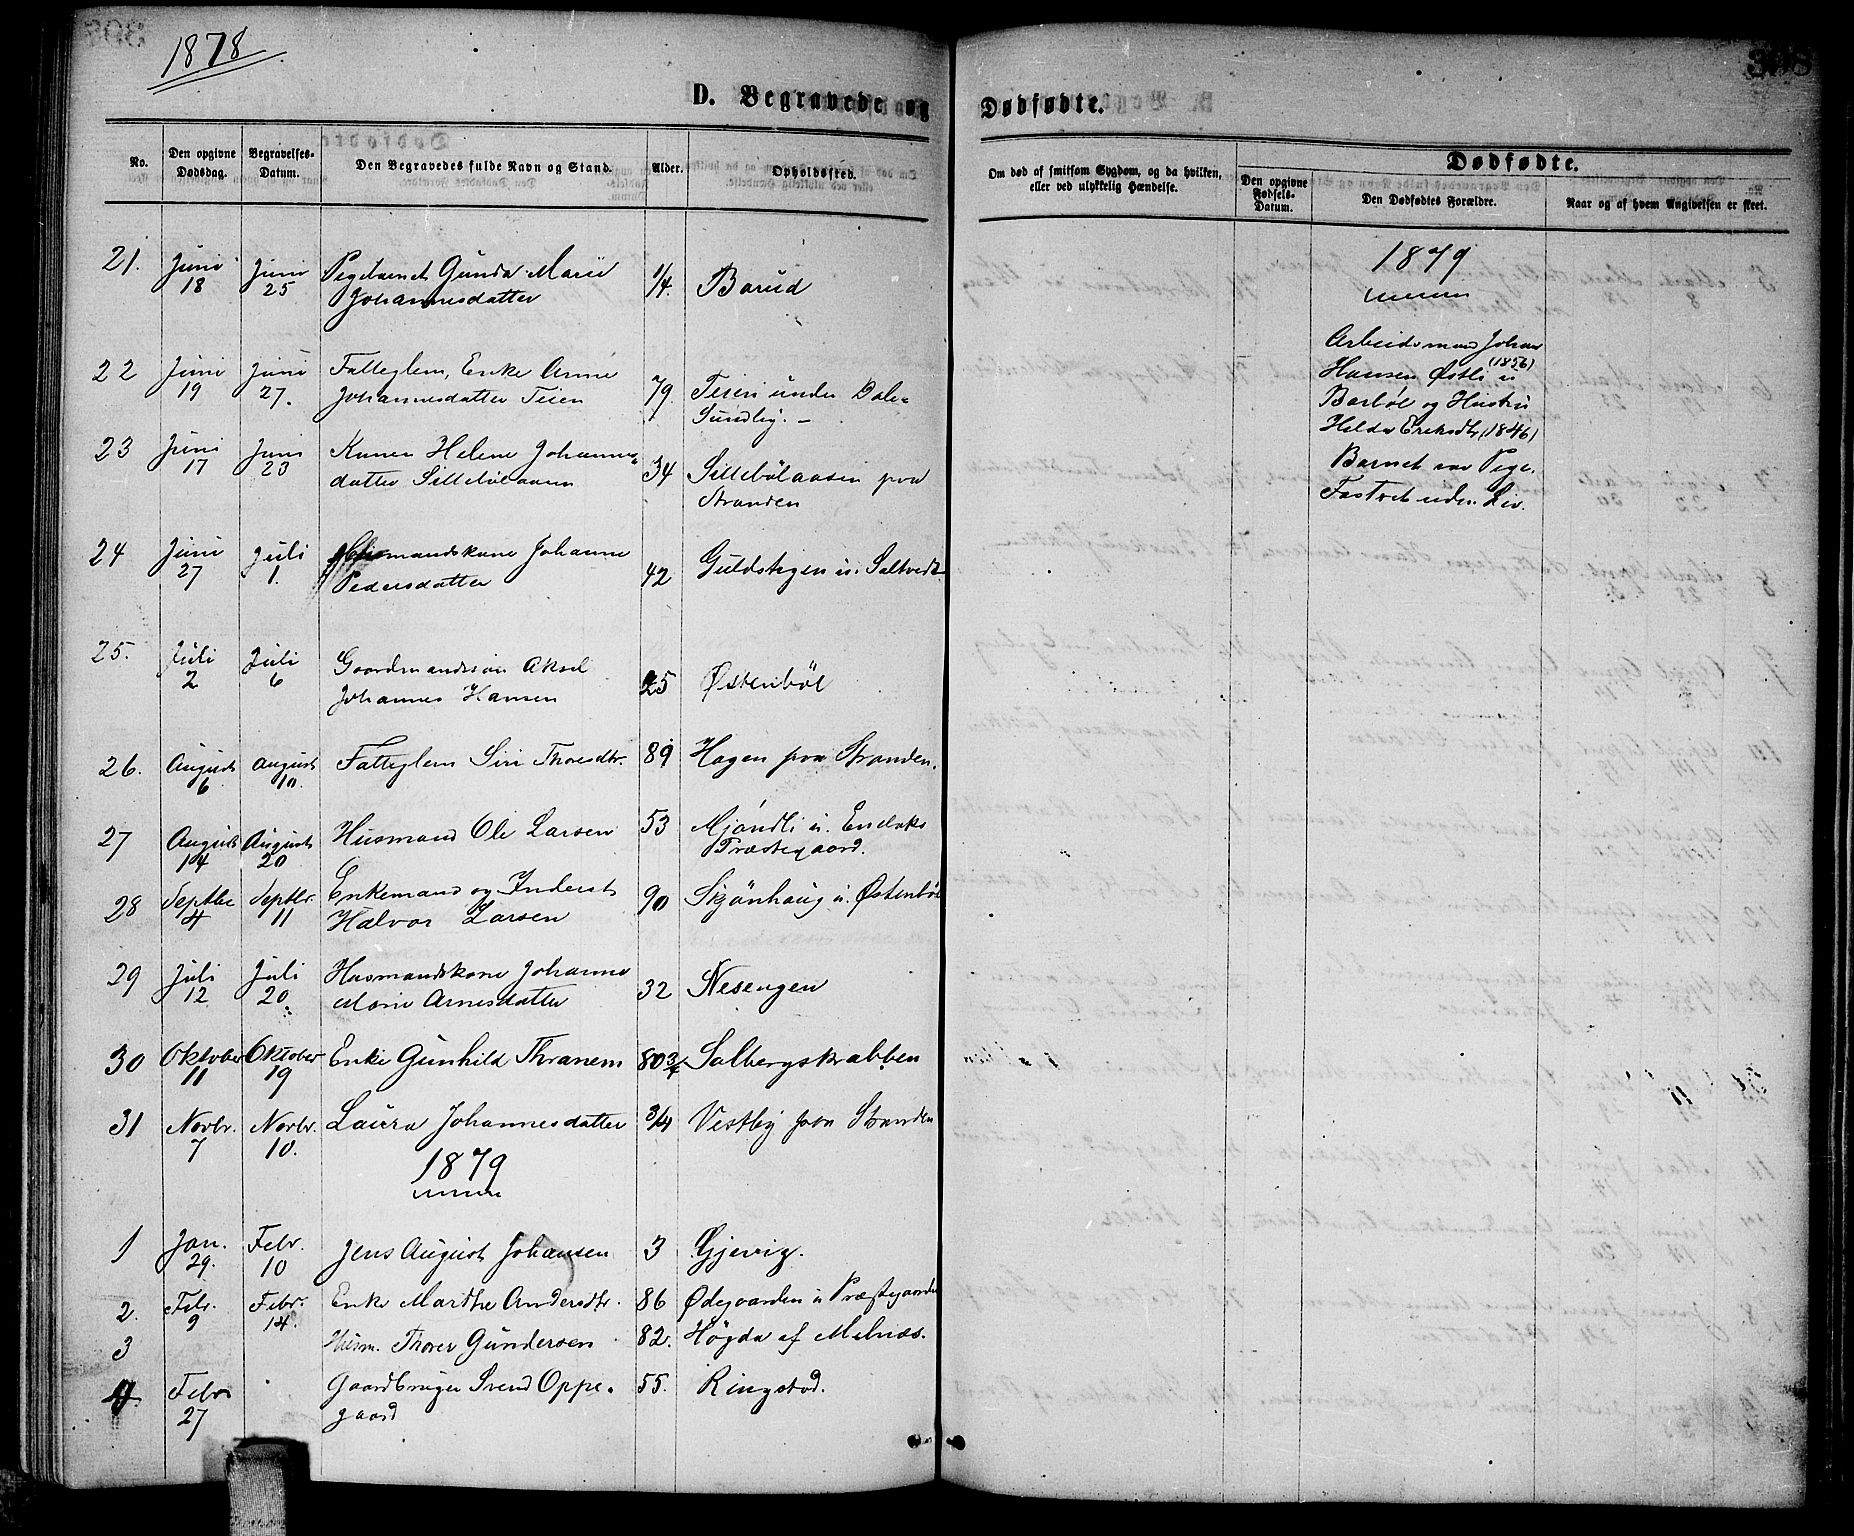 1878
308
D. Begravede og Dødfødte.
No. Den opgivne Dødsdag. Begravelses-Datum. Den Begravedes fulde Navn og Stand. Alder. Opholdssted.
Om død af smitsom Sygdom, og da hvilken, eller ved ulykkelig Hændelse.
Dødfødte.
Den opgivne Fødsels-Datum. Den Dødfødtes Forældre. Naar og af hvem Angivelsen er skeet.
21. Juni 18 Juni 25 Pigebarnet Gunda Marie 1/4. Barud
Johannesdatter
22 Juni 19 Juni 27. Fatteglem, Enke Anne 79. Teien under Dale-
Johannesdatter Teien Gundby. -
23 Juni 17 Juni 23 Kunen Helene Johannes- 34 Sillebølaasen paa
datter Sillebølaasen Stranden
24 Juni 27 Juli 1. Husmandskone Johanne 42 Guldstigen u. Saltvedt
Pedersdatter
25. Juli 2 Juli 6 Gaardmandssøn Aksel 25 Østenbøl
Johannes Hansen
26. August 6 August 10. Fatteglem Siri Thoresdtr. 89 Hagen paa Stranden.
27 August 14 August 20 Husmand Ole Larsen 53 Mjøndli u. Enebaks
Præstegaard.
28 Septbr 4 Septbr. 11 Enkemand og Inderst 90 Skjønhaug u. Østenbøl
Halvor Larsen
29 Juli 12 Juli 20. Husmandskone Johanne 32 Nesengen
Marie Arnesdatter
30 Oktober 11 Oktober 19 Enke Gunhild Thranem 80 3/4 Solbergskrabben
31 Novbr. 7 Novbr. 10. Laura Johannesdatter 3/4 Vestby paa Stranden
1879
1 Jan. 29. Febr. 10 Jens August Johansen 3 Gjevig.
2. Febr. 9 Febr. 14. Enke Marthe Andersdtr. 86 Ødegaarden u Præstegaarden
3 Husm. Thorer Gundersen 82. Høgda af Melnæs.
4. Febr 27 Gaardbruger Svend Oppe- 55. Ringstad.
gaard
1879
Arbeidsmand Johan
Hansen (1856) Østli u
Barbøl og Hustru
Helda Eriksdtr (1846)
Barnet var Pige.
Fostret uden Liv.